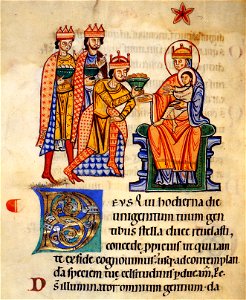 DEUS Qui hodierna die
unigenitum tuum gen
tibus stella duce reuelasti,
concede ppicius ut qui iam
te ex fide cognouimus, usq; ad contemplan
da speciem tue celsitudinis pducam
D̅s illuminator omnium gentium. da